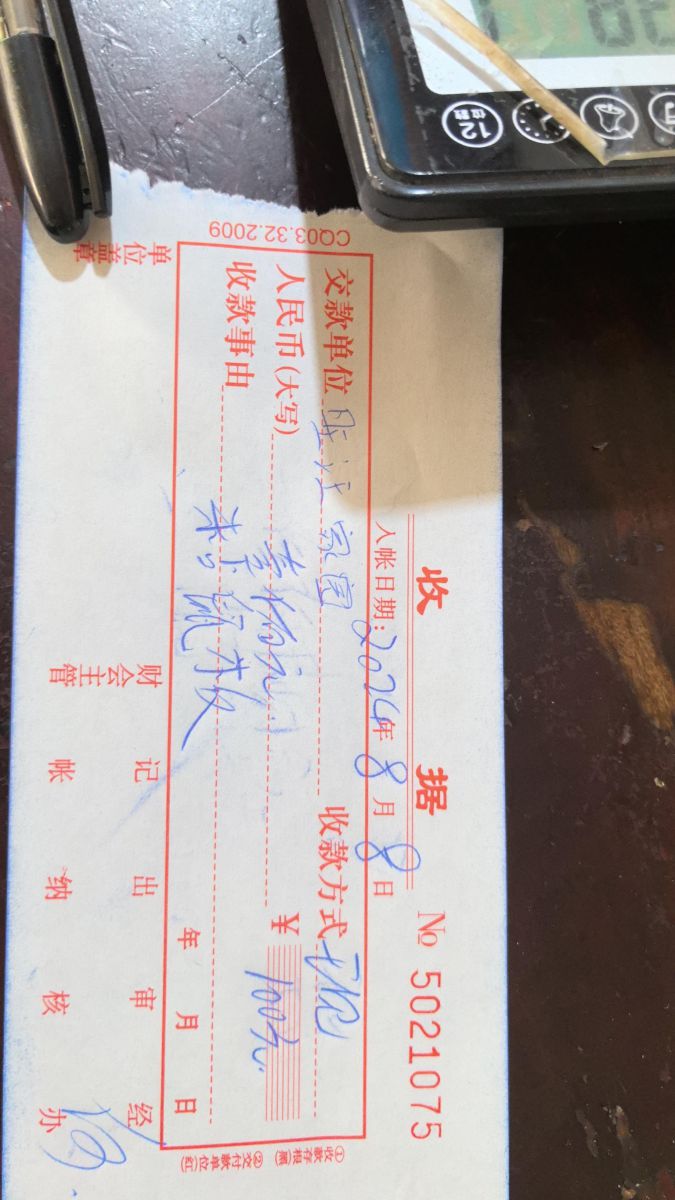 12
位数
CQ03.32.2009
收 据
No 5021075
入帐日期:2024年8月8日
交款单位 家园 收款方式
人民币(大写) 壹佰元 ¥ 100元
收款事由 粘鼠板
年 月 日
单位盖章
财会主管 记帐 出纳 审核 经办
①收款存根(黑) ②交付款单位(红)